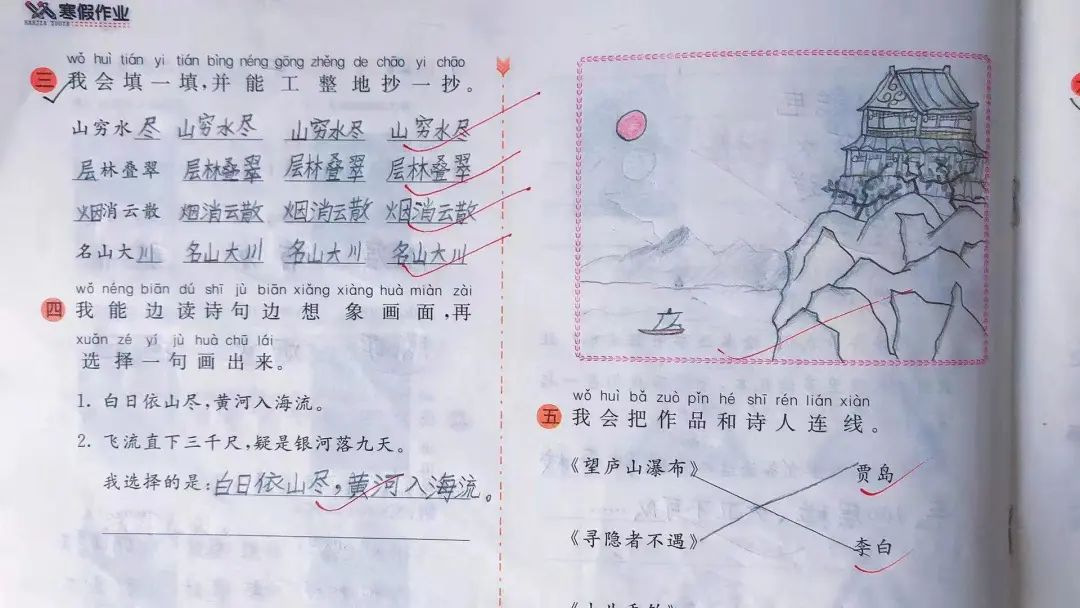 寒假作业
HANJIA ZUOYE
wǒ huì tián yi tián bìng néng gōng zhěng de chāo yi chāo
三 我会填一填,并能工整地抄一抄。
山穷水尽 山穷水尽 山穷水尽 山穷水尽
层林叠翠 层林叠翠 层林叠翠 层林叠翠
烟消云散 烟消云散 烟消云散 烟消云散
名山大川 名山大川 名山大川 名山大川
wǒ néng biān dú shī jù biān xiǎng xiàng huà miàn zài
四 我能边读诗句边想象画面,再
xuǎn zé yí jù huà chū lái
选择一句画出来。
1. 白日依山尽,黄河入海流。
2. 飞流直下三千尺,疑是银河落九天。
我选择的是:白日依山尽,黄河入海流。
wǒ huì bǎ zuò pǐn hé shī rén lián xiàn
五 我会把作品和诗人连线。
《望庐山瀑布》 贾岛
《寻隐者不遇》 李白